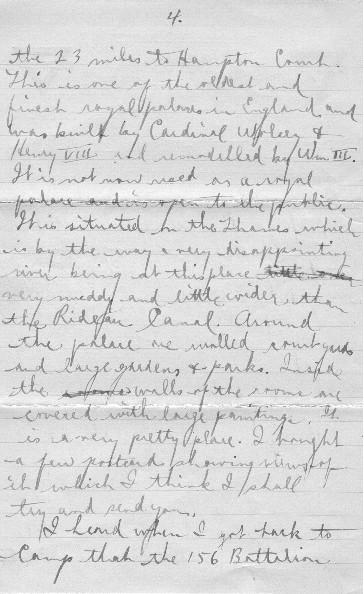 4.
the 23 miles to Hampton Court.
This is one of the oldest and
finest royal palaces in England and
was built by Cardinal Wolsey &
Henry VIII and remodelled by Wm III.
It is not now used as a royal
palace and is open to the public.
It is situated on the Thames which
is by the way a very disappointing
river being at this place little over
very muddy and little wider than
the Rideau Canal. Around
the palace are walled courtyards
and large gardens & parks. Inside
the rooms walls of the rooms are
covered with large paintings. It
is a very pretty place. I bought
a few postcards showing views of
it which I think I shall
try and send you.
I heard when I got back to
Camp that the 156 Battalion